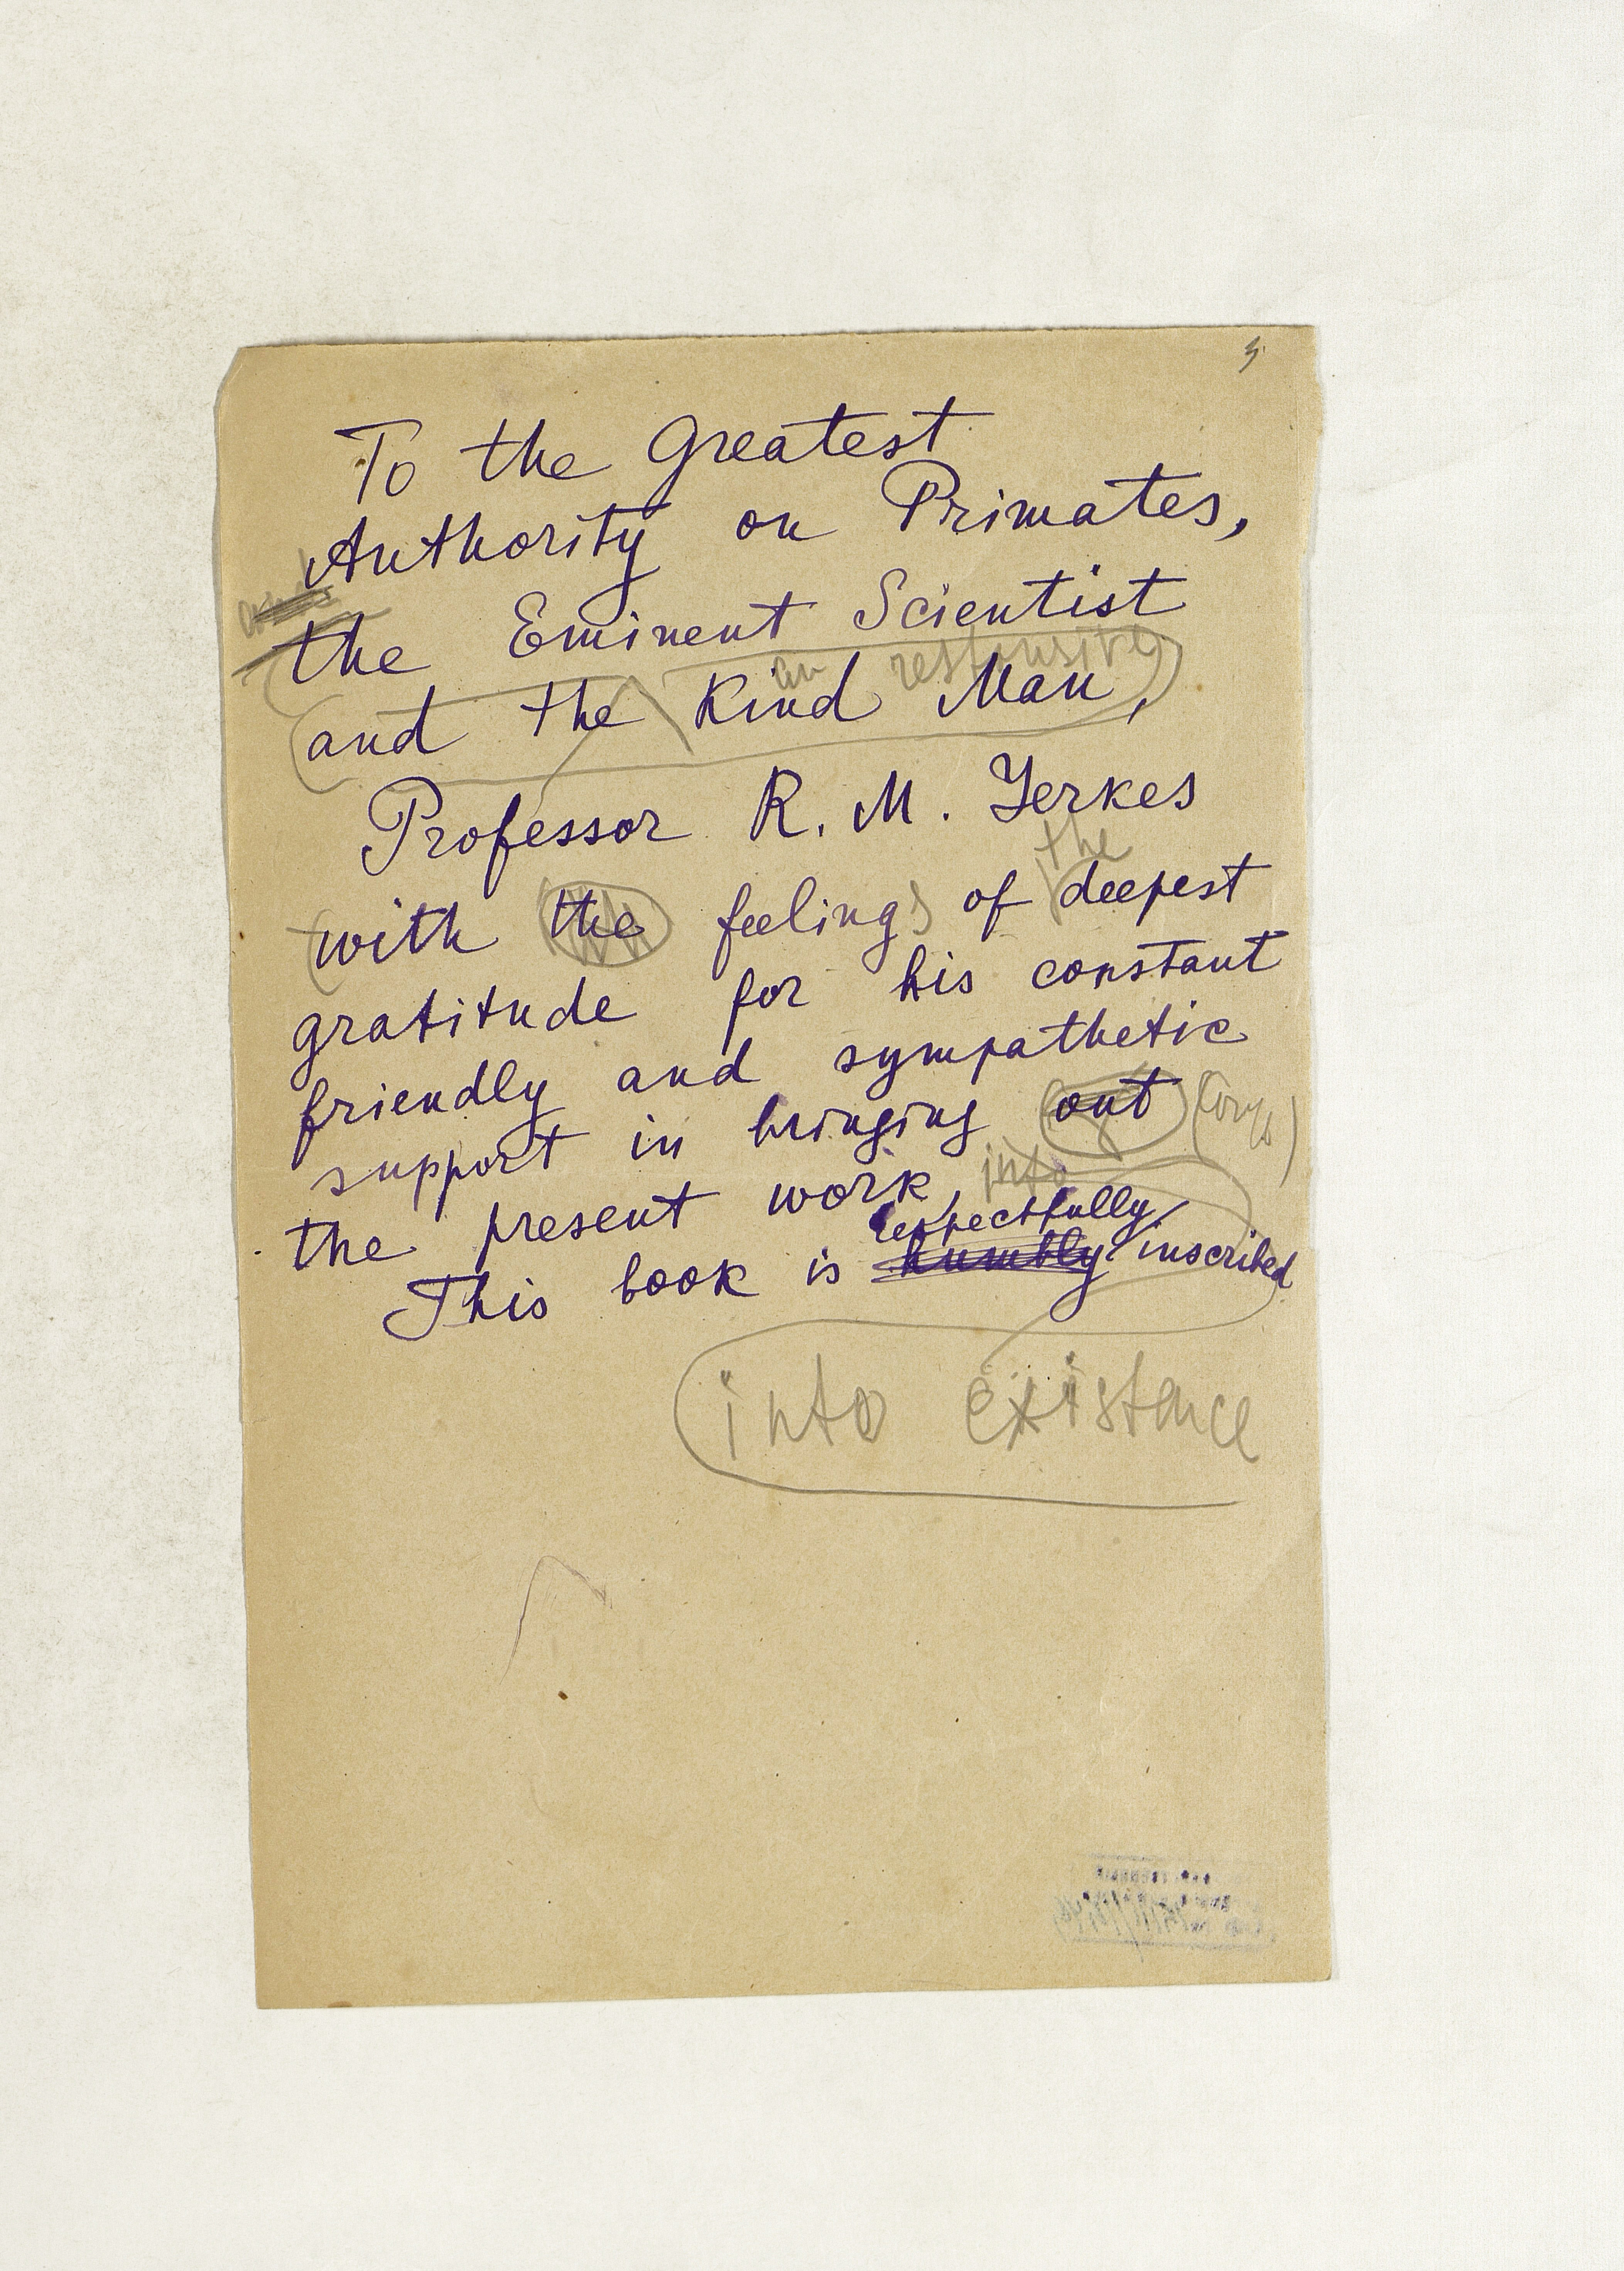 3
To the Greatest
Authority on Primates,
the Eminent Scientist
an responsive
and the Kind Man,
Professor R. M. Yerkes
the
with the feelings of deepest
gratitude for his constant
friendly and sympathetic
support in bringing out
into
the present work,
respectfully
This book is humbly inscribed
into existence